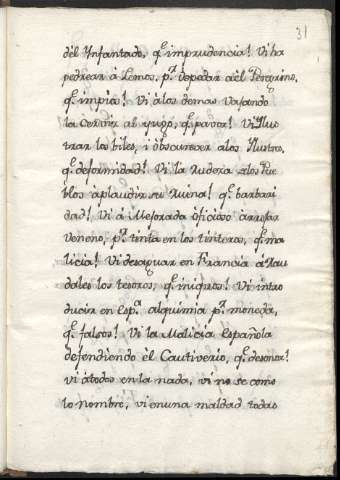 31
dèl Ynfantado, q.ͤ imprudencia! Vi ha
pedrear à Lemos, p.ª ospedar aèl Peregrino,
q.ͤ impia! Vi àlos demas vajando
la Cerviz al yugo, q.ͤ pavor! Vi Ylus
trar los viles, i obscurecer alos Ylustres,
q.ͤ deformidad! Vi la rudeza delos Pue
blos àplaudir su ruina! q.ͤ barbari
dad! Vi à Mejorada òficioso àrrojar
veneno, p.ª tinta en los tinteros, q.ͤ ma
licia! Vi desaguar en Francia à Rau
dales los tesoros, q.ͤ iniquos! Vi intro
ducir en Esp.ª alquimia p.ª moneda,
q.ͤ falsos! Vi la Malicia Española
defendiendo èl Cautiverio, q.ͤ desonra!
vi àtodos en la nada, vi no se como
lo nombre, vi enuna maldad todas